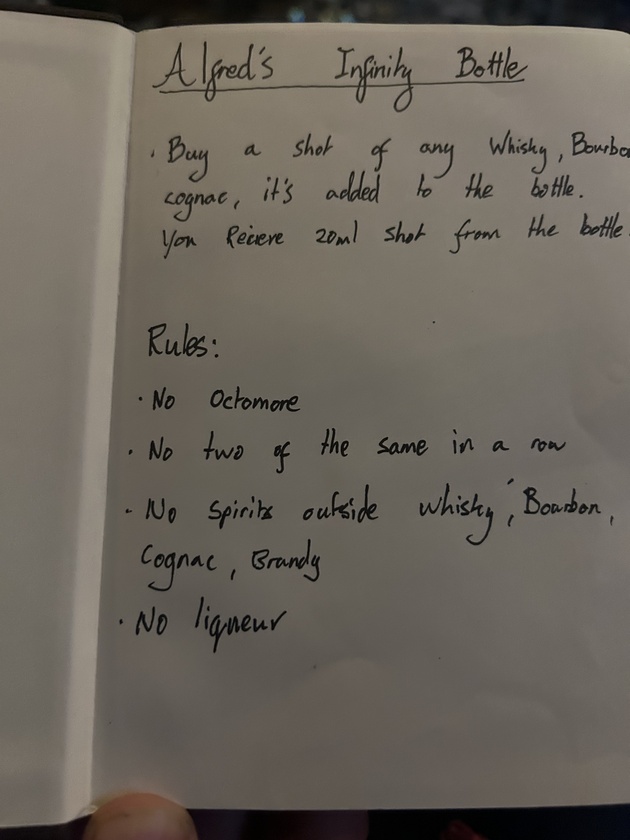 Alfred's Infinity Bottle
· Buy a shot of any Whisky, Bourbo
cognac, it's added to the bottle.
You Recieve 20ml shot from the bottle.
Rules:
· No Octomore
· No two of the same in a row
· No spirits outside whisky, Bourbon,
Cognac, Brandy
· No liqueur